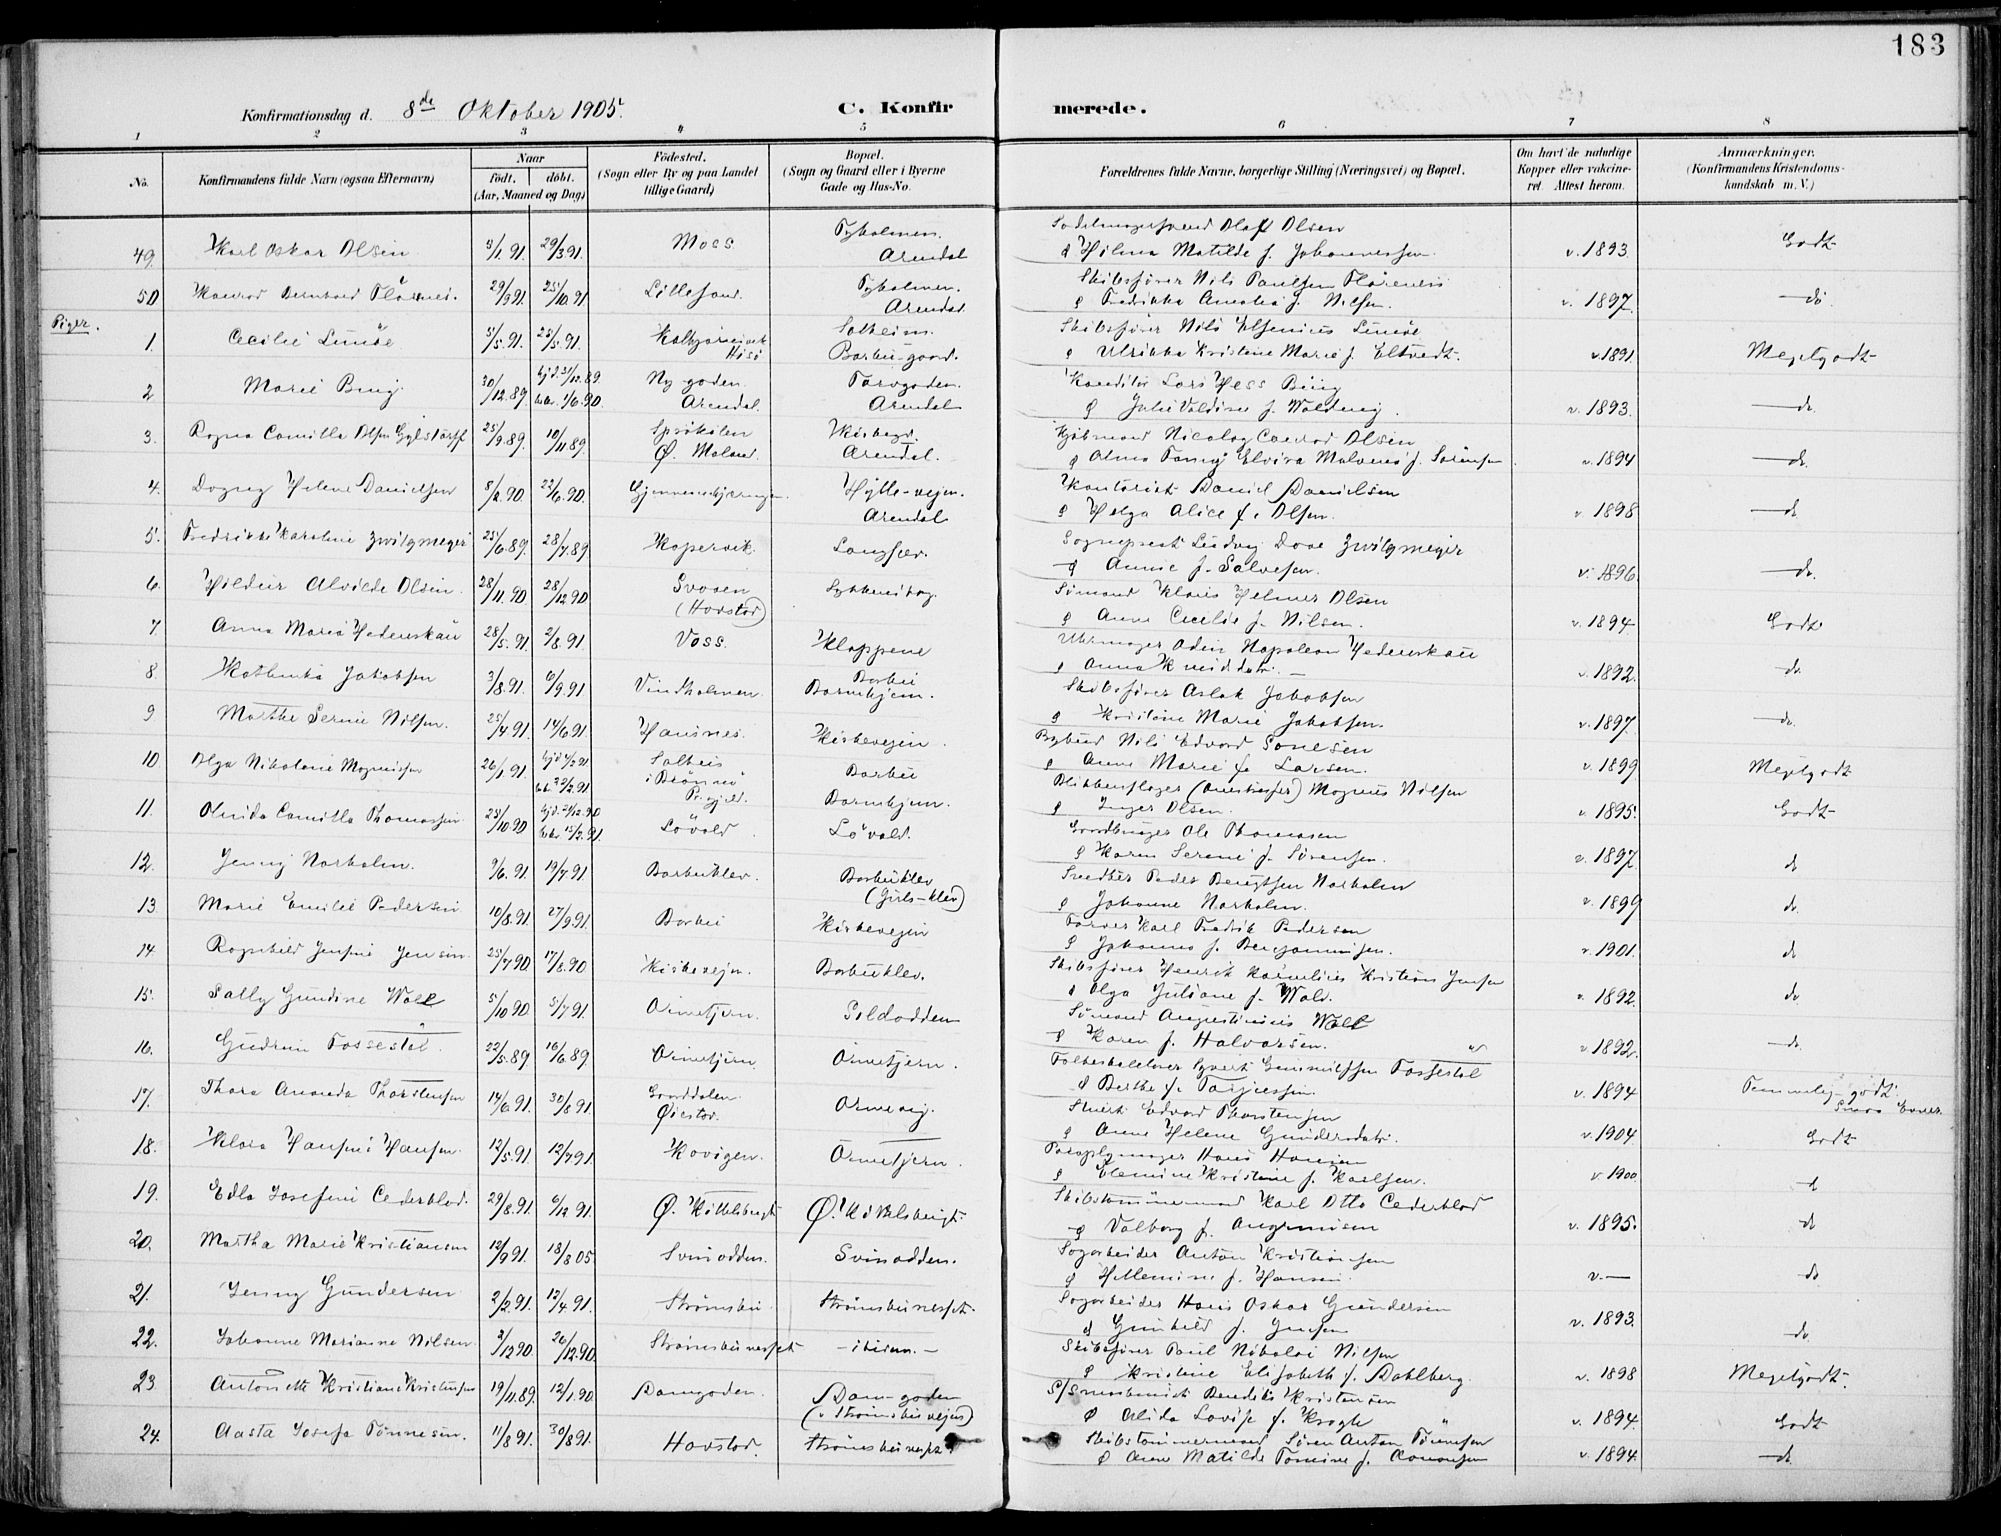 183
Konfirmationsdag d. 8de Oktober 1905.
C. Konfirmerede.
1 2 3 4 5 6 7 8
No.
Konfirmandens fulde Navn (ogsaa Efternavn)
Naar
født. døbt.
(Aar, Maaned og Dag)
Fødested.
(Sogn eller By og paa Landet
tillige Gaard)
Bopæl.
(Sogn og Gaard eller i Byerne
Gade og Hus-No.
Forældrenes fulde Navne, borgerlige Stilling (Næringsvei) og Bopæl.
Om havt de naturlige
Kopper eller vakcine-
ret. Attest herom.
Anmærkninger.
(Konfirmandens Kristendoms-
kundskab m. V.)
49. Karl Oskar Olsen 5/1.91. 29/3 91. Moss Tyholmen. Arendal
Olaf Olsen
& Hilma Matilde f. Johannessen. v. 1893. Godt
50. Konrad Bernhard 29/9 91. 25/10 91. Lillesand. Tyholmen. Arendal.
Skibsfører Nils Paulsen
& Fredrikke Amalia f. Nilsen. v. 1897. do.
Piger.
1. Cecilie 5/5.91. 25/5.91. Hisø Solheim. Barbu-gaard.
Skibsfører Nils
& Ulrikke Kristine Marie f. v. 1891. Megetgodt
2. Marie 30/12.89. hjd. 31/12.89. bekr. 1/6.90. Ny-gaden. Arendal. Torvgaden. Arendal
Konditor Lars Hess
& Julie Valdine f. v. 1893. do.
3. Ragna Camilla Olsen 25/9.89. 10/11.89. Ø. Moland. Kirkegd. Arendal.
Kjøbmand Nicolay Conrad Olsen
& Alma Fanny Elvira f. Sørensen. v. 1894 do.
4. Dagny Helene Danielsen 5/2.90 22/6.90. Hytte-vejen. Arendal
Kontorist Daniel Danielsen
& Helga Alice f. Olsen. v. 1898 do
5. Fredrikke Karoline Zwilgmeyer 25/6.89. 28/7.89. Kopervik. Langsæv.
Sogneprest Ludvig Daae Zwilgmeyer
& Annie f. Salvesen. v. 1896. do.
6. Hildur Alvilde Olsen. 28/11.90 28/12.90 Svosen (Havstad) Lykkensborg.
Sømand Klaus Helmer Olsen
& Anne Cecilie f. Nilsen. v. 1894 Godt
7. Anna Marie Hedenskau 28/5.91. 2/8.91. Voss. Kloppene
Uhrmager Odin Napoleon Hedenskau
& Anna v. 1892. do.
8. Kathinka Jakobsen 3/8.91. 6/9.91 Vindholmen. Barbu Barnehjem.
Skibsfører Aslak Jakobsen
& Kristine Marie Jakobsen. v. 1897. do.
9 Marthe Serine Nilsen. 25/4.91. 14/6.91. Hausnes. Kirkevejen.
Bybud Nils Edvard
& Anne Marie f. Larsen. v. 1899 Megetgodt
10 Olga Nikoline Magnussen 26/1.91. hjd 4/2 91 bekr. 22/2.91 i Brønnø Præstgjeld. Barbu Barnehjem.
Magnus Nilsen
& Inger Olsen. v. 1895. Godt
11. Camilla Thomassen 25/10.90 hjd. 26/12.90 bekr. 15/2.91. Løvold. Løvold.
Gaardbruger Ole Thomassen
& Karen Serene f. Sørensen. v. 1897. do
12. Jenny Norholm. 9/6.91. 19/7.91. Barbuklev. Barbuklev (Girls-klev)
Snedker Peder Bengtsen Norholm
& Johanne Norholm. v. 1899 do.
13. Marie Emilie Pedersen 10/8.91. 27/9.91. Barbu Kirkevejen
Farver Karl Fredrik Pedersen
& Johanne f. Benjaminsen. v. 1901. do
14. Ragnhild Jensine Jensen 25/7.90. 17/8.90 Kirkevejen. Barbuklev.
Skibsfører Henrik Kornelius Kristian Jensen
& Olga Juliane f. Wold. v. 1892. do
15. Sally Gundine Woll 5/10.90. 5/7.91. Ormetjern. Sildodden
Sømand Augustinius Woll
& Karen f. Halvorsen. v. 1892. do.
16. Gudrun Fossestøl. 22/5.89 16/6.89. Ormetjern Ormetjern.
Folkeskolelærer Syvert Gunnulfsen Fossestøl
& Berthe f. Tarjussen. v. 1894 Temmelig godt.
17. Thora Amanda Thorstensen 14/6.91. 30/8.91. Graddalen. Øiestad. Ormevig.
Stuert Edvard Thorstensen
& Anne Helene Gundersdatr. v. 1904 Godt
18. Klara Hansine Hansen 12/5.91. 12/7.91. Kovigen. Ormetjern.
Paraplymager Hans Hansen
& Elemine Kristine f. Karlsen. v. 1900 d
19. Edla Josefine Cederblad. 29/8.91. 6/12.91. Ø. Kittelsbugt Ø. Kittelsbugt.
Skibstømmermand Karl Otto Cederblad
& Valborg f. v. 1895. do
20. Martha Marie Kristiansen 12/9.91. 18/8.05 Svinodden. Svinodden.
Sagarbeider Anton Kristiansen
& f. Hansen. v. — do
21. Jenny Gundersen 2/2.91. 12/4.91. Strømsbu Strømsbuneset.
Sagarbeider Hans Oskar Gundersen
& Gunhild f. Jensen v. 1893. do
22. Johanne Marianne Nilsen 2/12.90. 26/12.90. Strømsbuneset — ibidem. —
Skibsfører Paul Nikolai Nilsen
& Kristine Elisabeth f. Dahlberg. v. 1898 Megetgodt.
23. Antonette Kristiane Kristensen 19/11.89. 12/1.90. Damgaden. Dam-gaden (v. Strømsbuvejen)
S/Smaskinist Benedikt Kristensen
& Alida Lovise f. Krogh v. 1894. Godt
24. Aasta Josefa Tønnesen. 11/8.91. 30/8 91. Havstad. Strømsbuneset
Skibstømmermand Søren Anton Tønnesen
& Anne Matilde Tomine f. Aanonsen v. 1894. do.